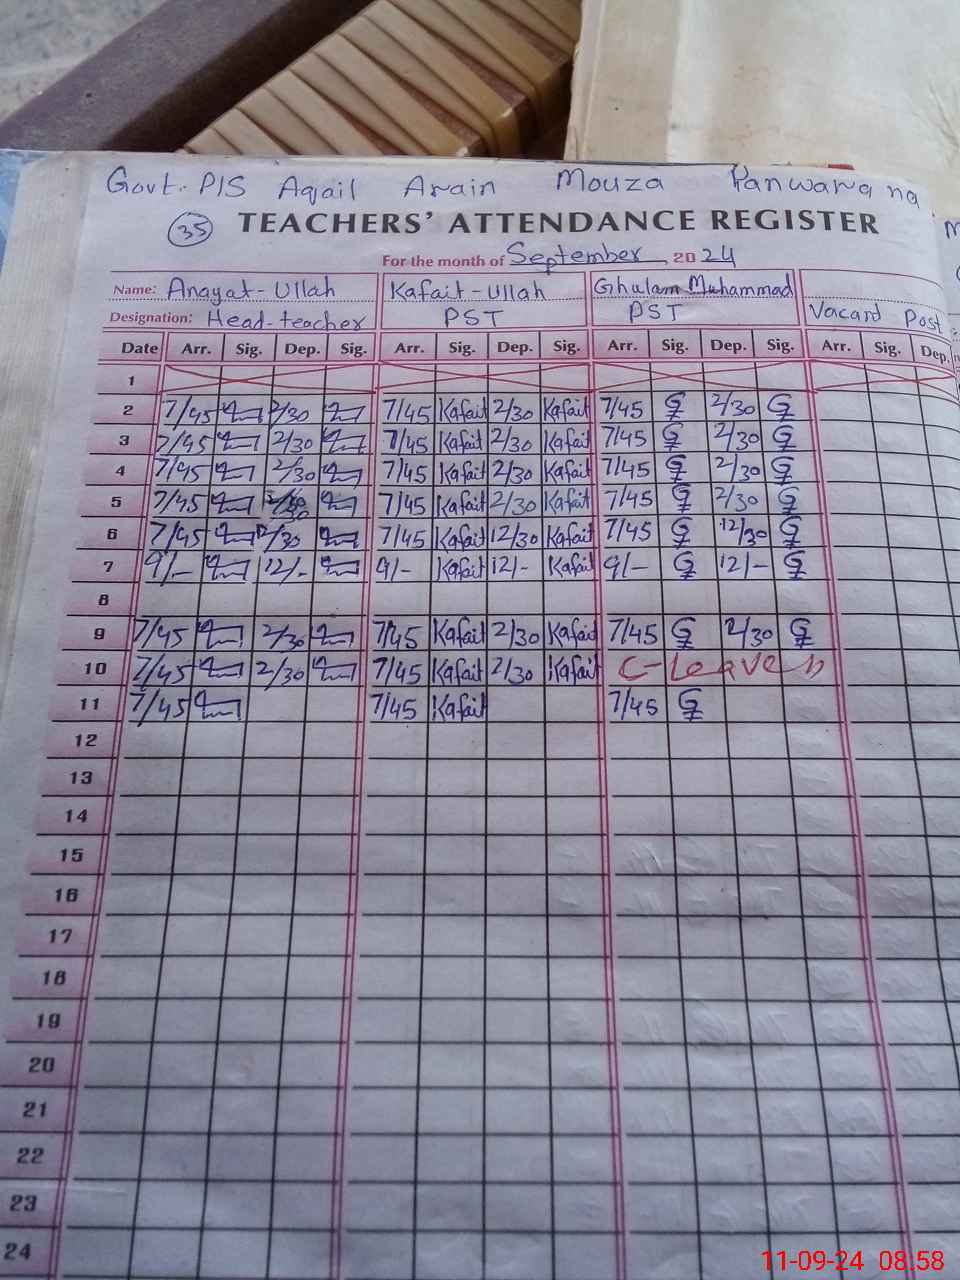 Govt. P/S Aqail Arain Mouza Panwarang
35 TEACHERS' ATTENDANCE REGISTER
For the month of September 2024
Name: Anayat-Ullah Kafait-Ullah Ghulam Muhammad
Designation: Head-teacher PST PST Vacant Post
Date Arr. Sig. Dep. Sig. Arr. Sig. Dep. Sig. Arr. Sig. Dep. Sig. Arr. Sig. Dep.
1
2 7/45 2/30 7/45 Kafait 2/30 Kafait 7/45 2/30
3 7/45 2/30 7/45 Kafait 2/30 Kafait 7/45 2/30
4 7/45 2/30 7/45 Kafait 2/30 Kafait 7/45 2/30
5 7/45 7/45 Kafait 2/30 Kafait 7/45 2/30
6 7/45 12/30 7/45 Kafait 12/30 Kafait 7/45 12/30
7 9/- 12/- 9/- Kafait 12/- Kafait 9/- 12/-
8
9 7/45 2/30 7/45 Kafait 2/30 Kafait 7/45 2/30
10 7/45 2/30 7/45 Kafait 2/30 Kafait C-Leave
11 7/45 7/45 Kafait 7/45
12
13
14
15
16
17
18
19
20
21
22
23
24
11-09-24 08.58